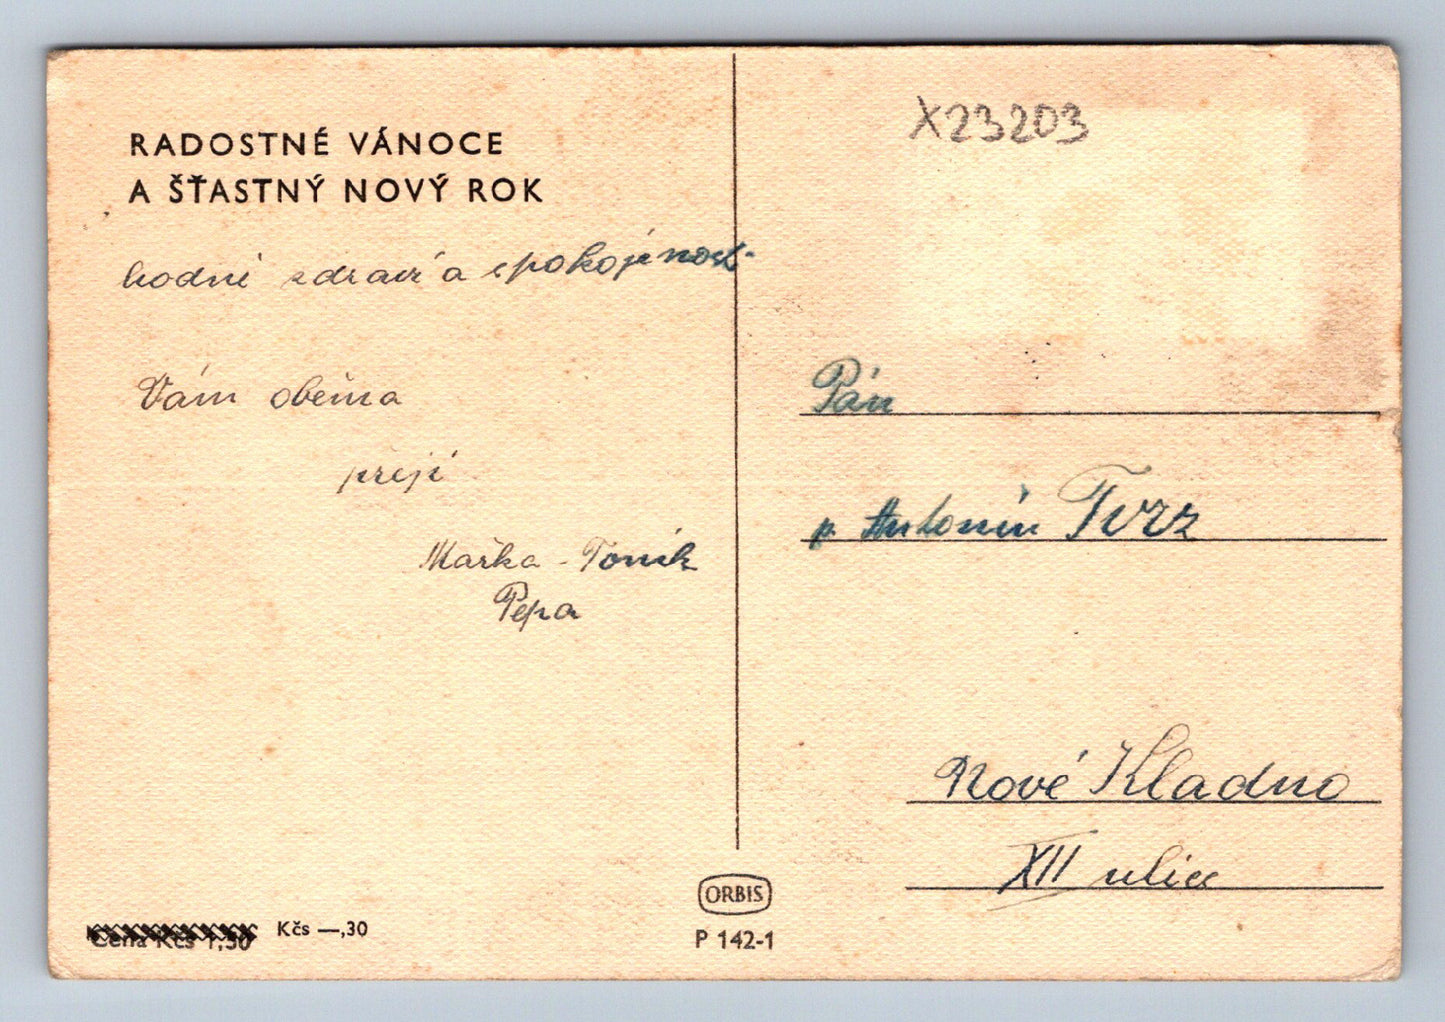 RADOSTNÉ VÁNOCE
A ŠŤASTNÝ NOVÝ ROK
hodně zdraví a spokojenost
Vám oběma
přejí
Mařka - Toník
Pepa
Cena Kčs 1,50 Kčs —,30
ORBIS
P 142-1
X23203
Pán
p. Antonín Tvrz
Nové Kladno
XII ulice